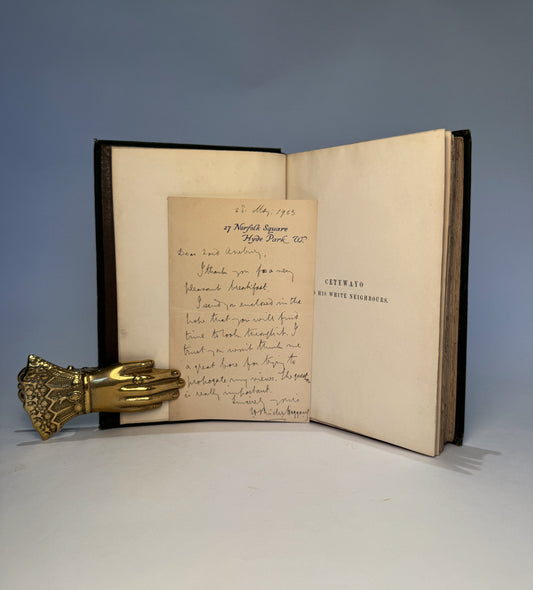 28. May. 1903
27 Norfolk Square
Hyde Park W.
Dear Lord Avebury,
I thank you for a very
pleasant breakfast.
I send you enclosed in the
hope that you will find
time to look through it. I
trust you won't think me
a great bore for trying to
propagate my views. The question
is really important
Sincerely yours
H Rider Haggard
CETYWAYO
D HIS WHITE NEIGHBOURS.